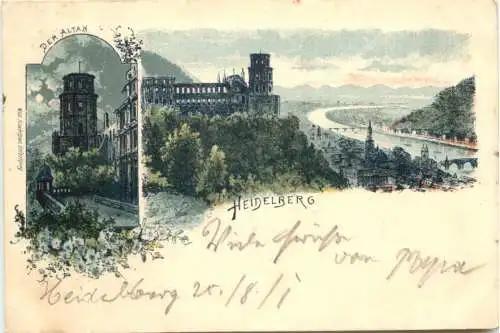 DER ALTAN
HEIDELBERG
Viele Grüsse
von
Heidelberg 20/8/